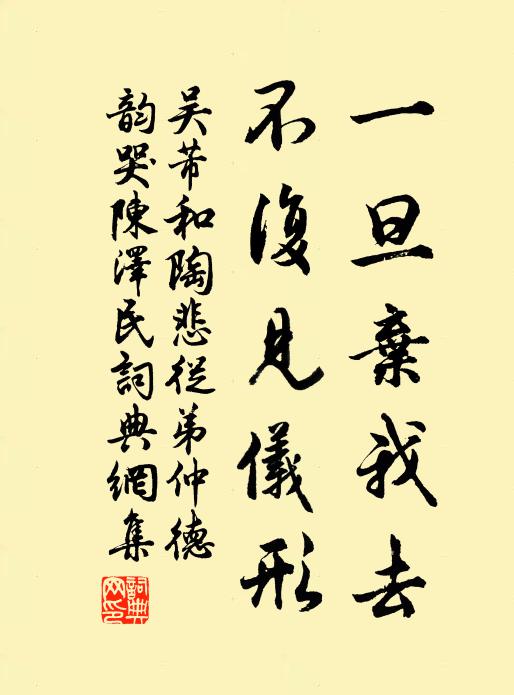 一旦棄我去
不復見儀形
吴芾和陶悲從弟仲德
韵哭陳澤民詞典網集
詞典
网印